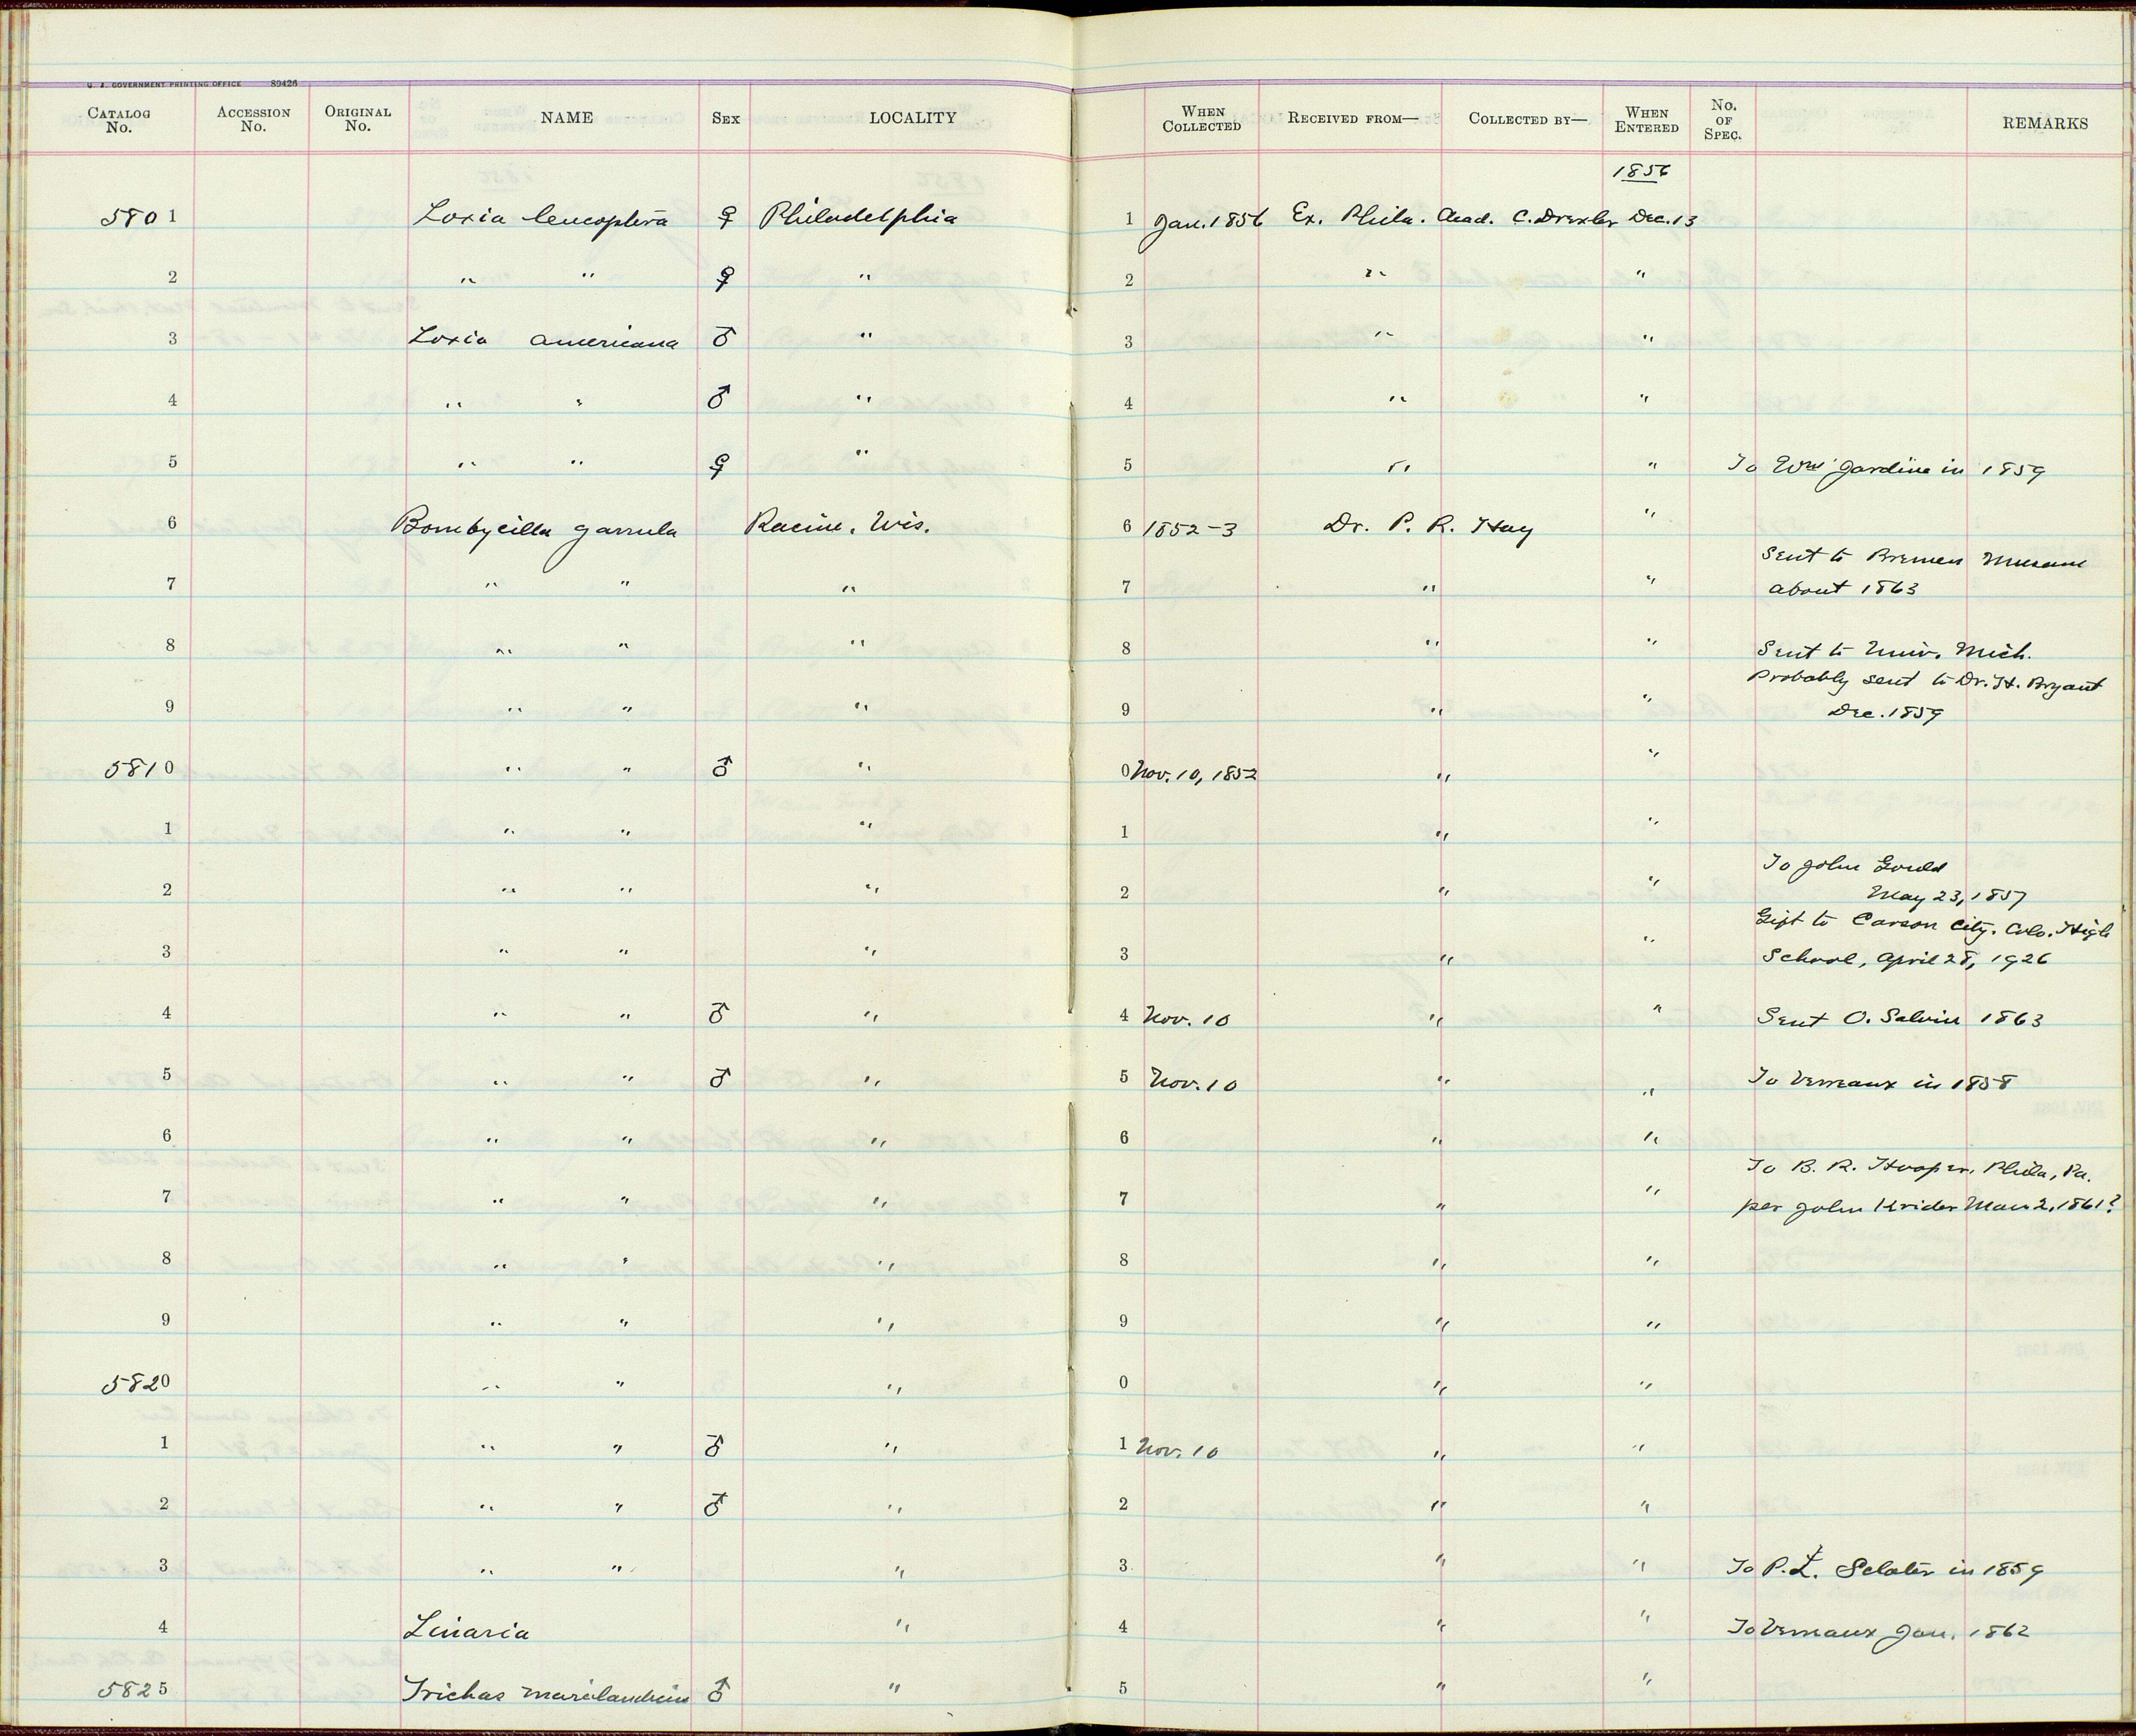 U. S. GOVERNMENT PRINTING OFFICE 89426
CATALOG No. ACCESSION No. ORIGINAL No. NAME SEX LOCALITY WHEN COLLECTED RECEIVED FROM— COLLECTED BY— WHEN ENTERED No. OF SPEC. REMARKS
1856
5801 Loxia leucoptera ♀ Philadelphia 1 Jan. 1856 Ex. Phila. Acad. C. Drexler Dec. 13
2 " " ♀ " 2 " "
3 Loxia americana ♂ " 3 " "
4 " " ♂ " 4 " "
5 " " ♀ " 5 " " To Wm Jardine in 1859
6 Bombycilla garrula Racine, Wis. 6 1852-3 Dr. P. R. Hoy "
Sent to Bremen Museum
7 " " " 7 " " about 1863
8 " " " 8 " " Sent to Univ. Mich.
Probably sent to Dr. H. Bryant
9 " " " 9 " " Dec. 1859
5810 " " ♂ " 0 Nov. 10, 1852 " "
1 " " " 1 " "
To John Gould
2 " " " 2 " " May 23, 1857
Gift to Carson City, Colo. High
3 " " " 3 " " School, April 28, 1926
4 " " ♂ " 4 Nov. 10 " " Sent O. Salvin 1863
5 " " ♂ " 5 Nov. 10 " " To Verreaux in 1858
6 " " " 6 " "
To B. R. Hooper, Phila, Pa.
7 " " " 7 " " per John Krider Mar 2, 1861?
8 " " " 8 " "
9 " " " 9 " "
5820 " " " 0 " "
1 " " ♂ " 1 Nov. 10 " "
2 " " ♂ " 2 " "
3 " " " 3 " " To P. L. Sclater in 1859
4 Linaria " 4 " " To Verreaux Jan. 1862
5825 Trichas marilandicus ♂ " 5 " "